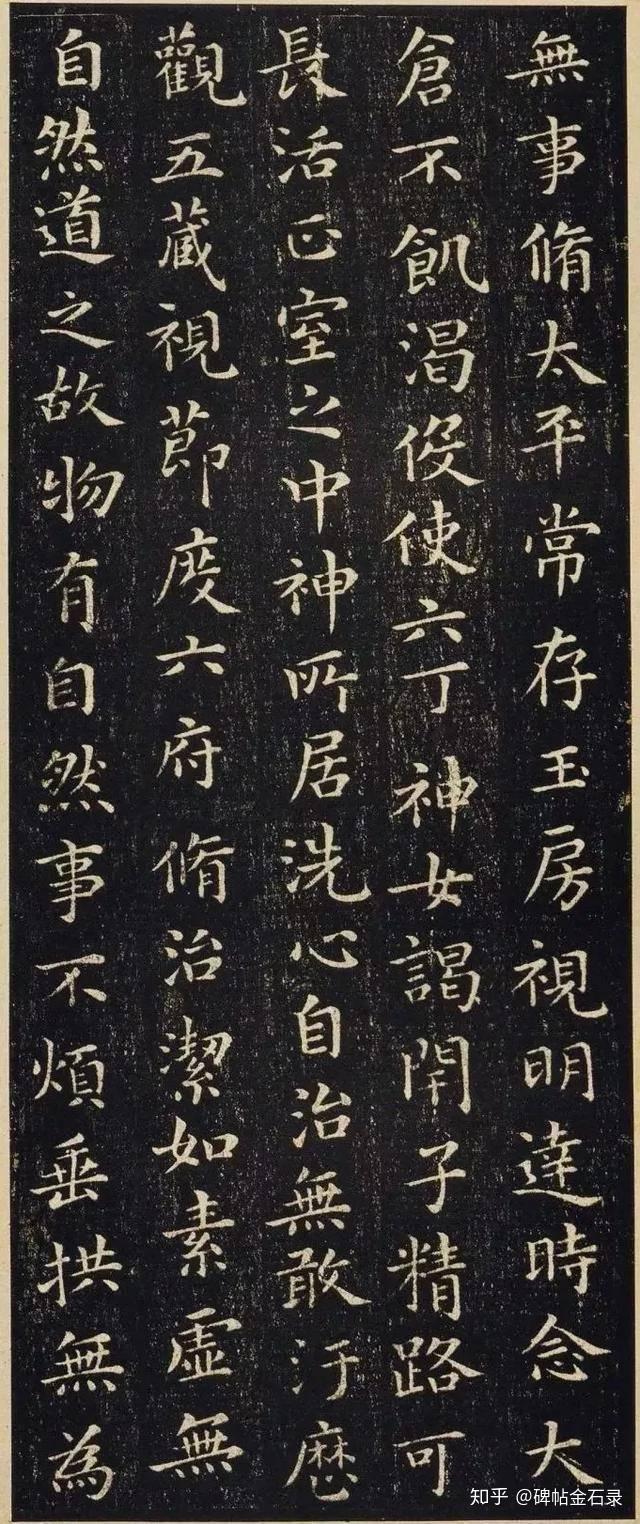 無事脩太平常存玉房視明達時念大
倉不飢渴役使六丁神女謁閇子精路可
長活正室之中神所居洗心自治無敢汙歷
觀五藏視節度六府脩治潔如素虛無
自然道之故物有自然事不煩垂拱無為
知乎 @碑帖金石录